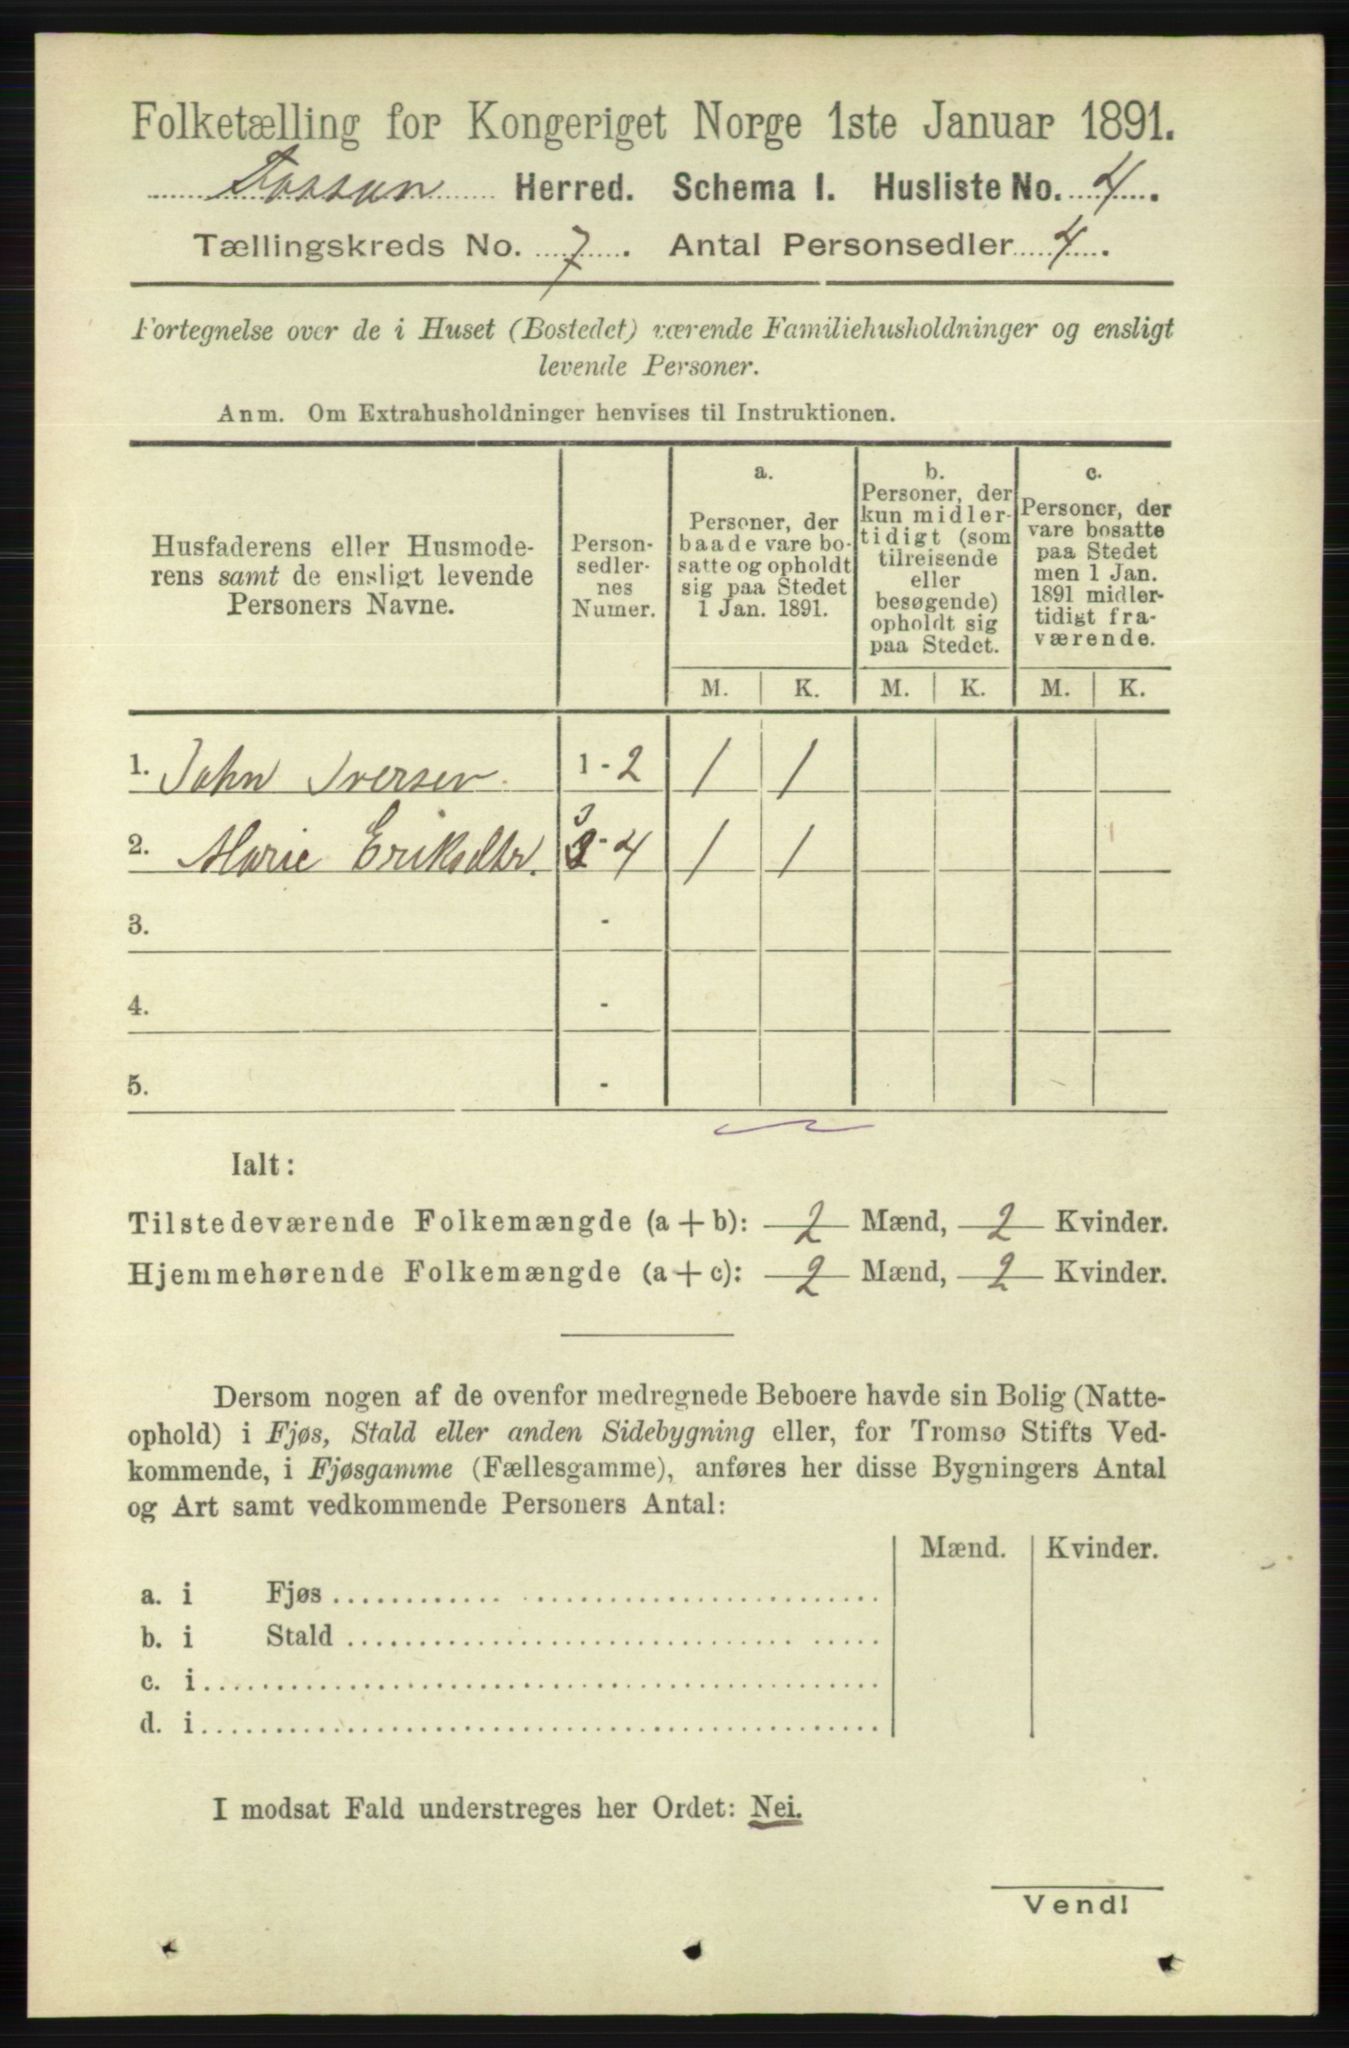 Folketælling for Kongeriget Norge 1ste Januar 1891.
Fossan Herred. Schema I. Husliste No. 4.
Tællingskreds No. 7. Antal Personsedler 4.
Fortegnelse over de i Huset (Bostedet) værende Familiehusholdninger og ensligt
levende Personer.
Anm. Om Extrahusholdninger henvises til Instruktionen.
Husfaderens eller Husmode-
rens samt de ensligt levende
Personers Navne.
Person-
sedler-
nes
Numer.
a.
Personer, der
baade vare bo-
satte og opholdt
sig paa Stedet
1 Jan. 1891.
b.
Personer, der
kun midler-
tidigt (som
tilreisende
eller
besøgende)
opholdt sig
paa Stedet.
c.
Personer, der
vare bosatte
paa Stedet
men 1 Jan.
1891 midler-
tidigt fra-
værende.
M. K. M. K. M. K.
1. John Iversen. 1 - 2 1 1
2. Marie Eriksdtr. 3 - 4 1 1
3. -
4. -
5. -
Ialt:
Tilstedeværende Folkemængde (a + b): 2 Mænd, 2 Kvinder.
Hjemmehørende Folkemængde (a + c): 2 Mænd, 2 Kvinder.
Dersom nogen af de ovenfor medregnede Beboere havde sin Bolig (Natte-
ophold) i Fjøs, Stald eller anden Sidebygning eller, for Tromsø Stifts Ved-
kommende, i Fjøsgamme (Fællesgamme), anføres her disse Bygningers Antal
og Art samt vedkommende Personers Antal:
Mænd. Kvinder.
a. i Fjøs
b. i Stald
c. i
d. i
I modsat Fald understreges her Ordet: Nei.
Vend!